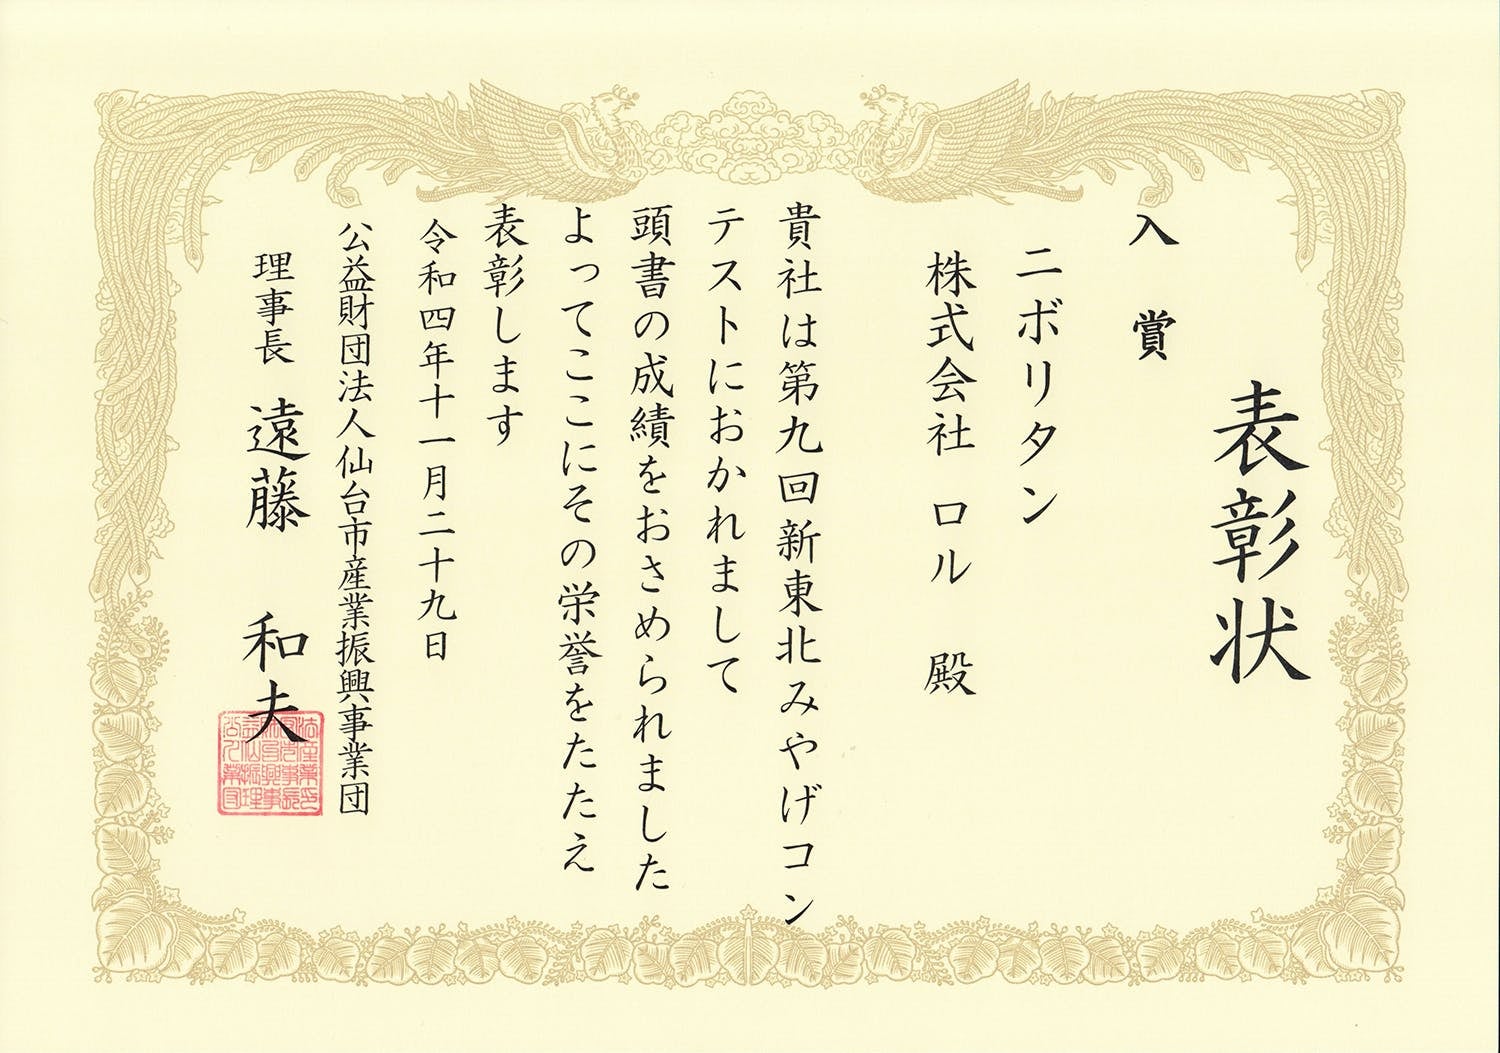 表彰状
入賞
ニボリタン
株式会社 ロル 殿
貴社は第九回新東北みやげコン
テストにおかれまして
頭書の成績をおさめられました
よってここにその栄誉をたたえ
表彰します
令和四年十一月二十九日
公益財団法人仙台市産業振興事業団
理事長 遠藤 和夫